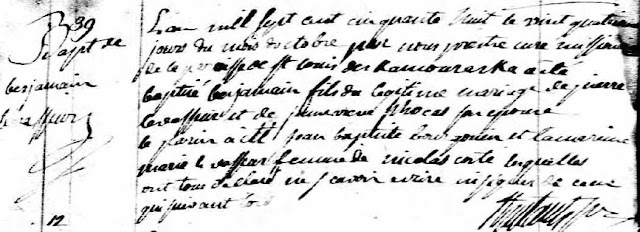 B 39
bapt de
benjamain
levasseur
Lan mill sept cent cinquante huit le vint quatrieme
jours du mois doctobre par nous pretre curé missionnaire
de la paroisse de St Louis des Kamouraska a été
baptisé benjamain fils du legitime mariage de pierre
levasseur et de phocas son epouse
le parin a été jean baptiste et la marine
marie levasseur femme de nicolas coté lesquelles
ont tous declaré ne scavoir ecrire ni signer de ce
qui suivant lo
12